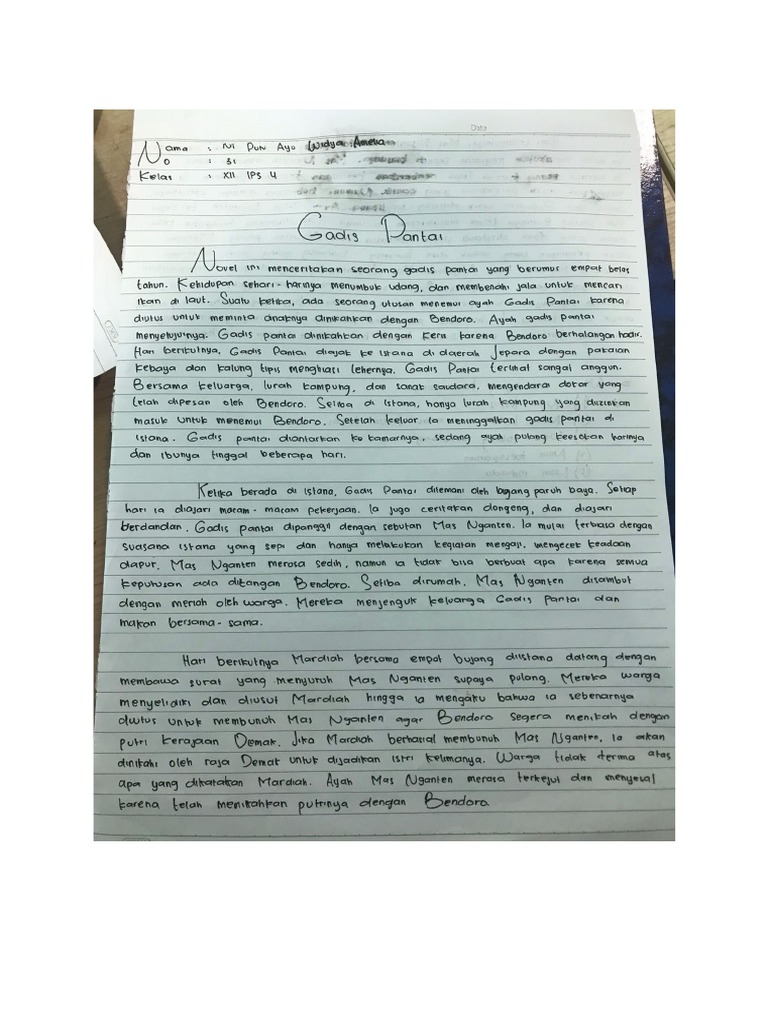 Nama : Ni Putu Ayu Widya Amelia
No : 31
Kelas : XII IPS 4
Gadis Pantai
Novel ini menceritakan seorang gadis pantai yang berumur empat belas
tahun. Kehidupan sehari-harinya menumbuk udang, dan membenahi jala untuk mencari
ikan di laut. Suatu ketika, ada seorang utusan menemui ayah Gadis Pantai karena
diutus untuk meminta anaknya dinikahkan dengan Bendoro. Ayah gadis pantai
menyetujuinya. Gadis pantai dinikahkan dengan keris karena Bendoro berhalangan hadir.
Hari berikutnya, Gadis Pantai diajak ke istana di daerah Jepara dengan pakaian
kebaya dan kalung tipis menghiasi lehernya. Gadis Pantai terlihat sangat anggun.
Bersama keluarga, lurah kampung, dan sanak saudara, mengendarai dokar yang
telah dipesan oleh Bendoro. Setiba di istana, hanya lurah kampung yang diizinkan
masuk untuk menemui Bendoro. Setelah keluar ia meninggalkan gadis pantai di
istana. Gadis pantai diantarkan ke kamarnya, sedang ayah pulang keesokan harinya
dan ibunya tinggal beberapa hari.
Ketika berada di istana, Gadis Pantai ditemani oleh bujang paruh baya. Setiap
hari ia diajari macam-macam pekerjaan. Ia juga ceritakan dongeng, dan diajari
berdandan. Gadis pantai dipanggil dengan sebutan Mas Nganten. Ia mulai terbiasa dengan
suasana istana yang sepi dan hanya melakukan kegiatan mengaji, mengecek keadaan
dapur. Mas Nganten merasa sedih, namun ia tidak bisa berbuat apa karena semua
keputusan ada ditangan Bendoro. Setiba dirumah, Mas Nganten disambut
dengan meriah oleh warga. Mereka menjenguk keluarga Gadis Pantai dan
makan bersama-sama.
Hari berikutnya Mardiah bersama empat bujang diistana datang dengan
membawa surat yang menyuruh Mas Nganten supaya pulang. Mereka warga
menyelidiki dan diusut Mardiah hingga ia mengaku bahwa ia sebenarnya
diutus untuk membunuh Mas Nganten agar Bendoro segera menikah dengan
putri kerajaan Demak. Jika Mardiah berhasial membunuh Mas Nganten, ia akan
dinikahi oleh raja Demak untuk dijadikan istri kelimanya. Warga tidak terima atas
apa yang dikatakan Mardiah. Ayah Mas Nganten merasa terkejut dan menyesal
karena telah menikahkan putrinya dengan Bendoro.